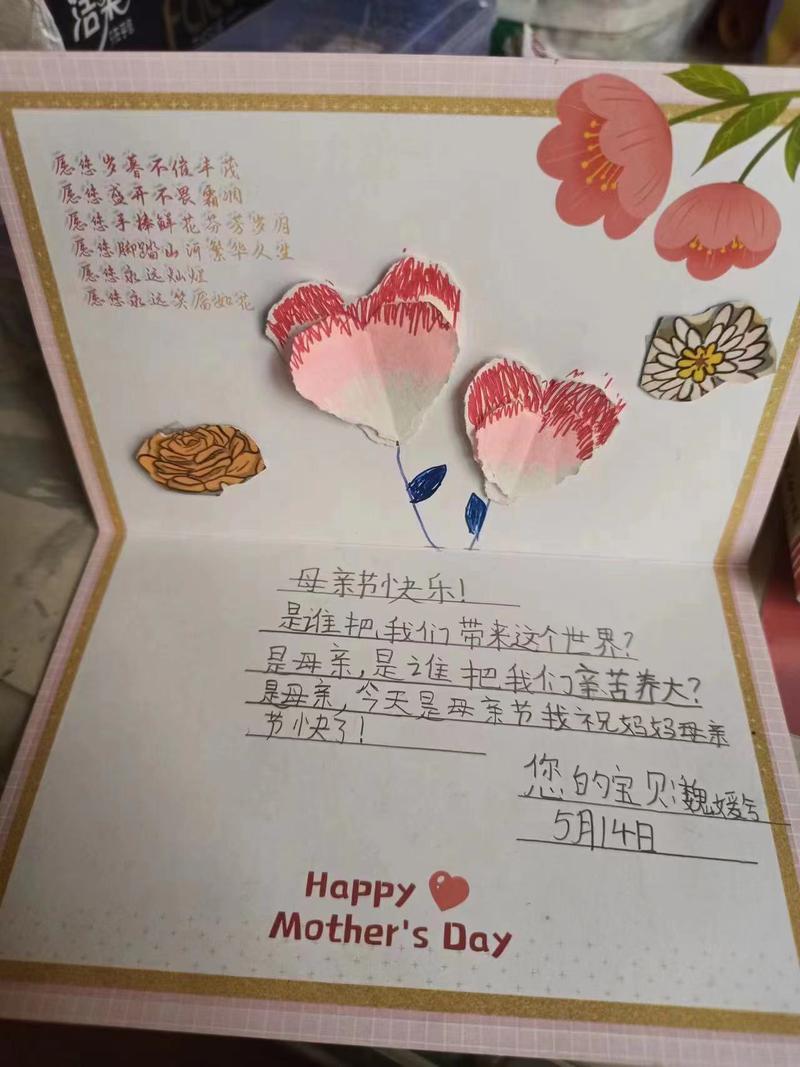 洁柔
愿您岁暮不催丰茂
愿您盛开不畏霜凋
愿您手捧鲜花芬芳岁月
愿您脚踏山河繁华久生
愿您永远灿烂
愿您永远笑靥如花
母亲节快乐！
是谁把我们带来这个世界？
是母亲，是谁把我们辛苦养大？
是母亲，今天是母亲节我祝妈妈母亲
节快了！
您的宝贝：魏媛
5月14日
Happy
Mother's Day